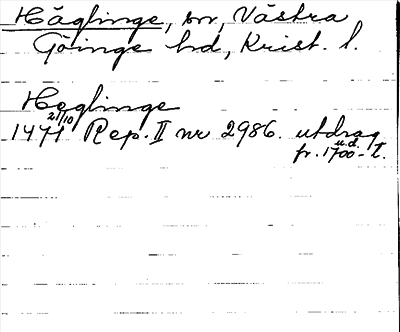 Häglinge, sn, Västra
Göinge hd, Krist. l.
Heglinge
1471 21/10 Rep. II nr 2986. utdrag u.d.
fr. 1700-t.